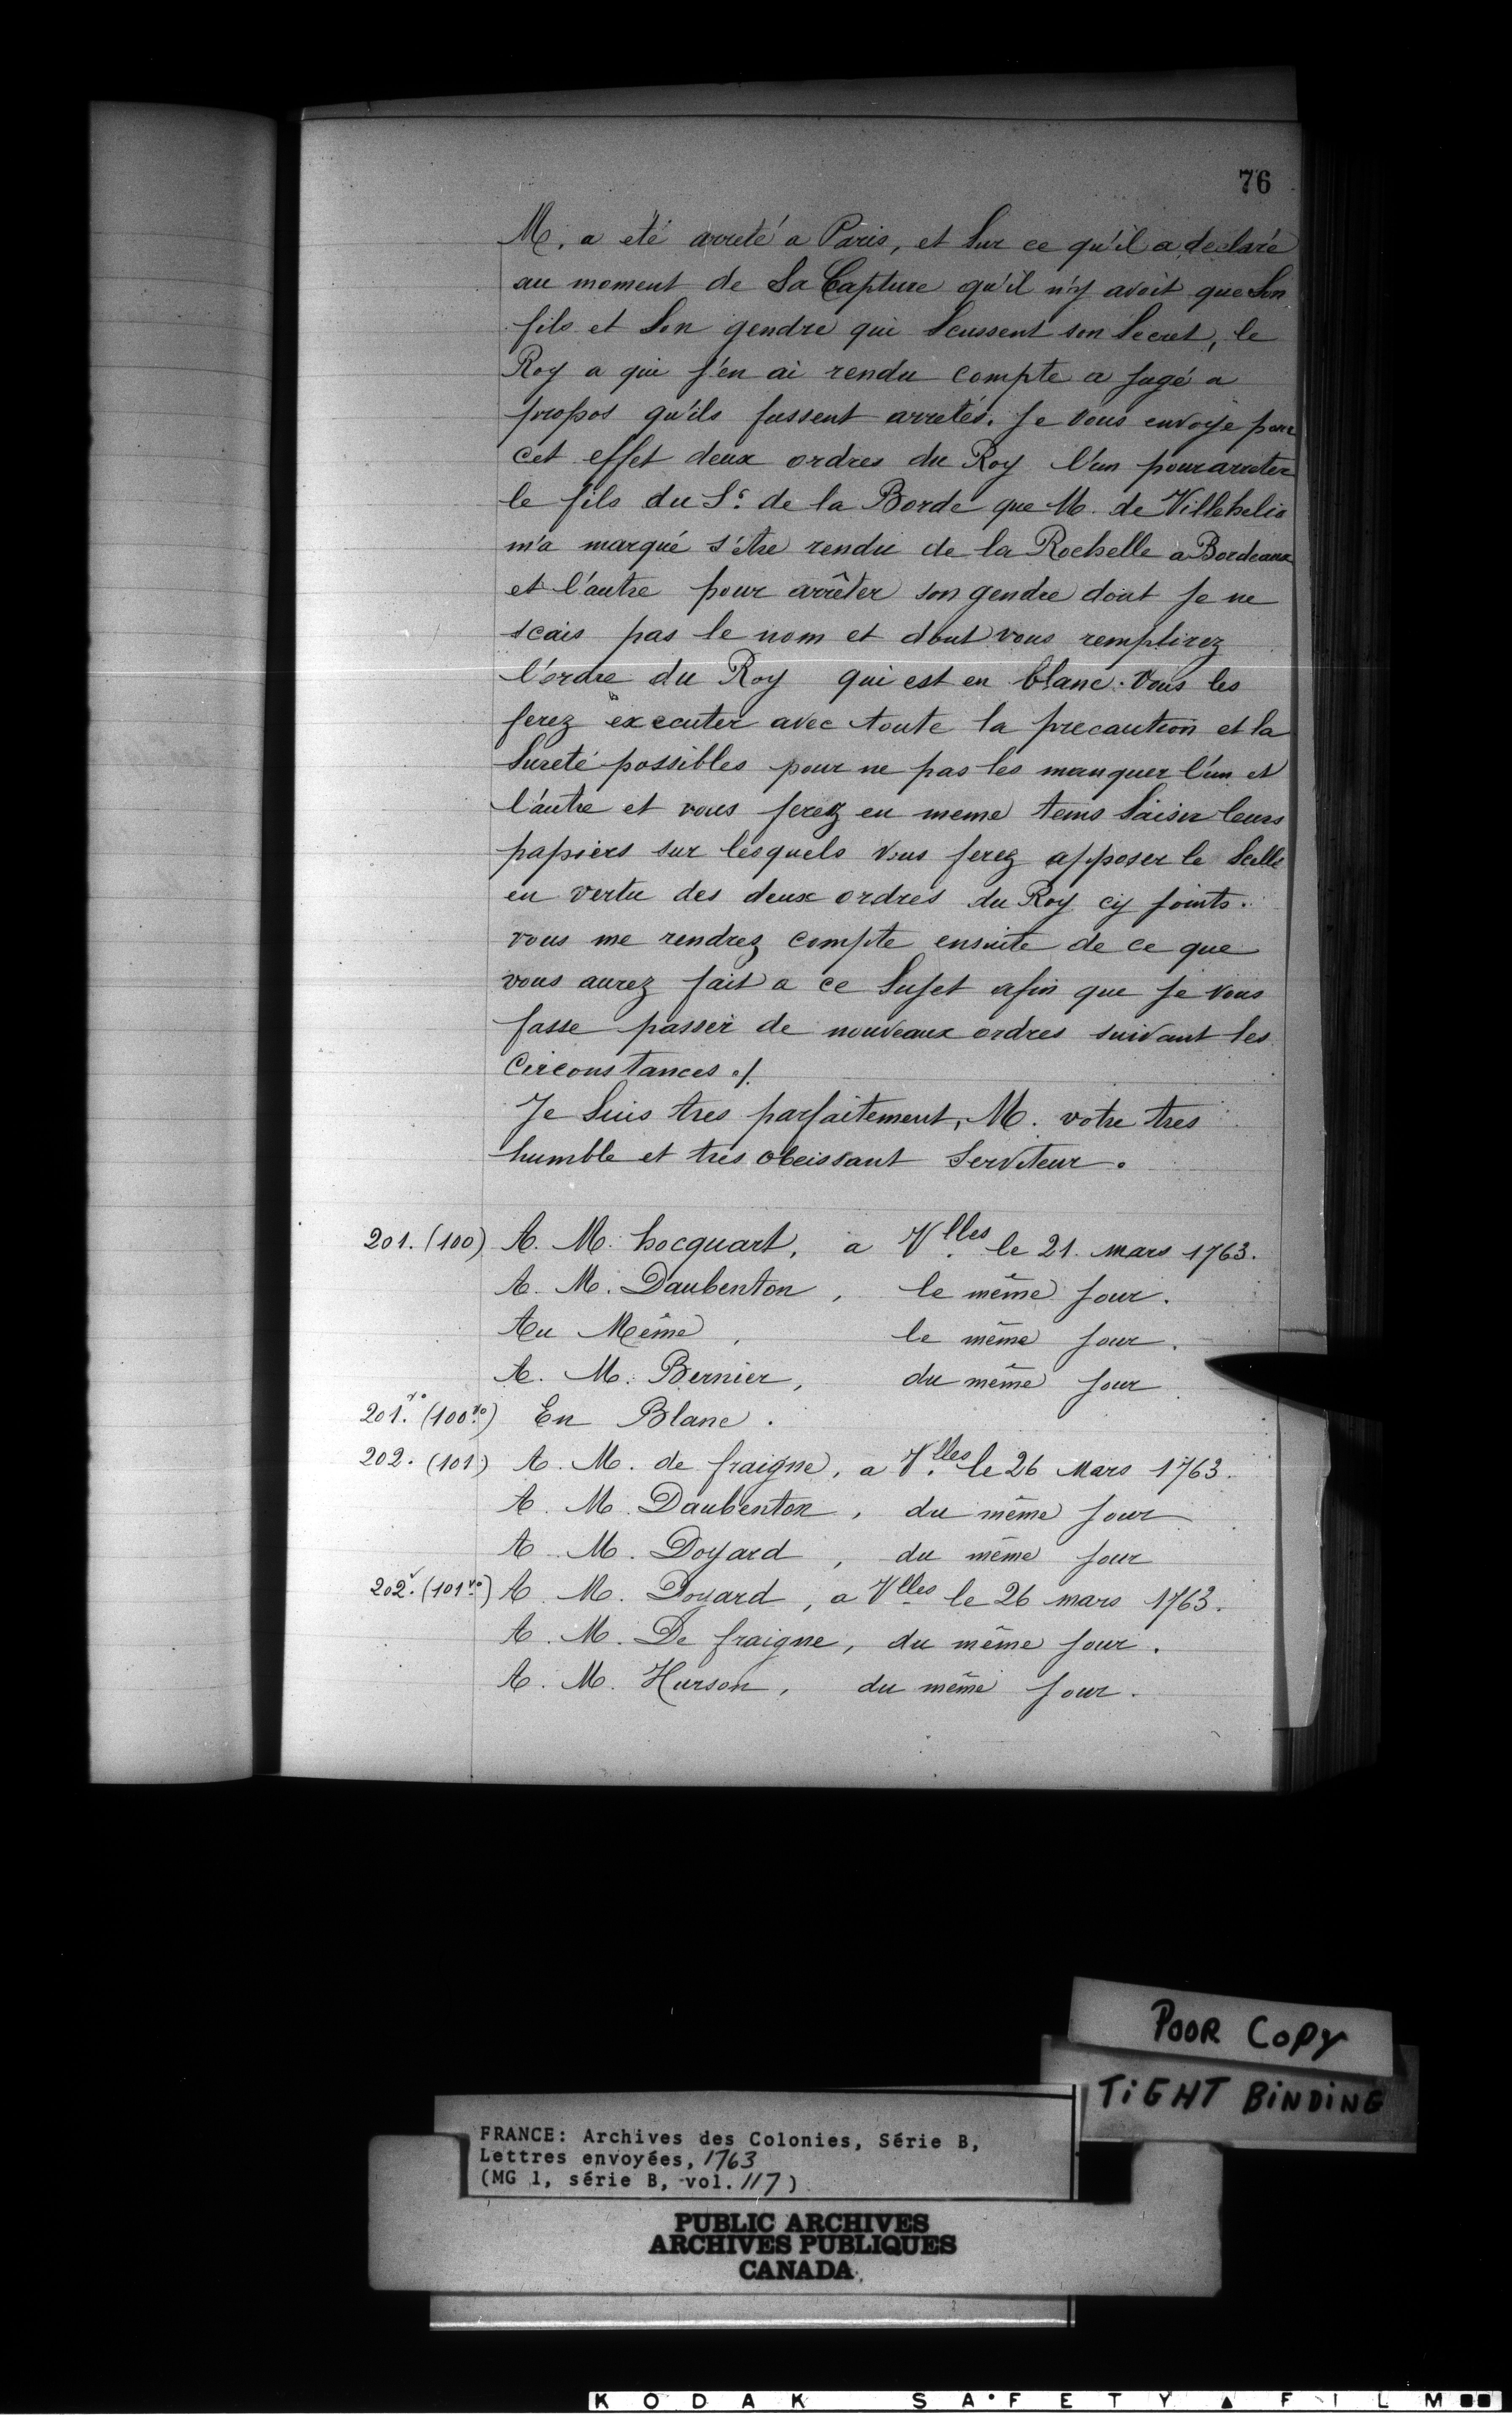 76
M. a eté arreté a Paris, et Sur ce qu'il a declaré
au moment de Sa Capture qu'il n'y avoit que Son
fils et Son gendre qui Scussent son Secret, le
Roy a qui j'en ai rendu compte a jugé a
propos qu'ils fussent arretés. Je vous envoye pour
cet effet deux ordres du Roy l'un pour arreter
le fils du Sr. de la Borde que M. de Villehelio
m'a marqué s'être rendu de la Rochelle a Bordeaux
et l'autre pour arrêter son gendre dont je ne
scais pas le nom et dont vous remplirez
l'ordre du Roy qui est en blanc. Vous les
ferez executer avec toute la precaution et la
Sureté possibles pour ne pas les manquer l'un et
l'autre et vous ferez en meme tems Saisir leurs
papiers sur lesquels vous ferez apposer le Scellé
en vertu des deux ordres du Roy cy joints.
vous me rendrez compte ensuite de ce que
vous aurez fait a ce Sujet afin que je vous
fasse passer de nouveaux ordres suivant les
Circonstances ./.
Je Suis tres parfaitement, M. votre tres
humble et tres obeissant Serviteur.
201. (100) A. M. hocquart, a Vlles le 21. mars 1763.
A. M. Daubenton, le même jour.
Au Même, le même jour.
A. M. Bernier, du même jour
201.vo (100vo) En Blanc.
202. (101) A. M. de fraigne, a Vlles le 26 Mars 1763.
A. M. Daubenton, du même jour
A M. Doyard, du même jour
202.v (101vo) A. M. Doyard, a Vlles le 26 mars 1763.
A. M. De fraigne, du même jour.
A. M. Hurson, du même jour.
POOR COPY
TIGHT BINDING
FRANCE: Archives des Colonies, Série B,
Lettres envoyées, 1763
(MG 1, série B, vol. 117)
PUBLIC ARCHIVES
ARCHIVES PUBLIQUES
CANADA
KODAK SAFETY ▲ FILM